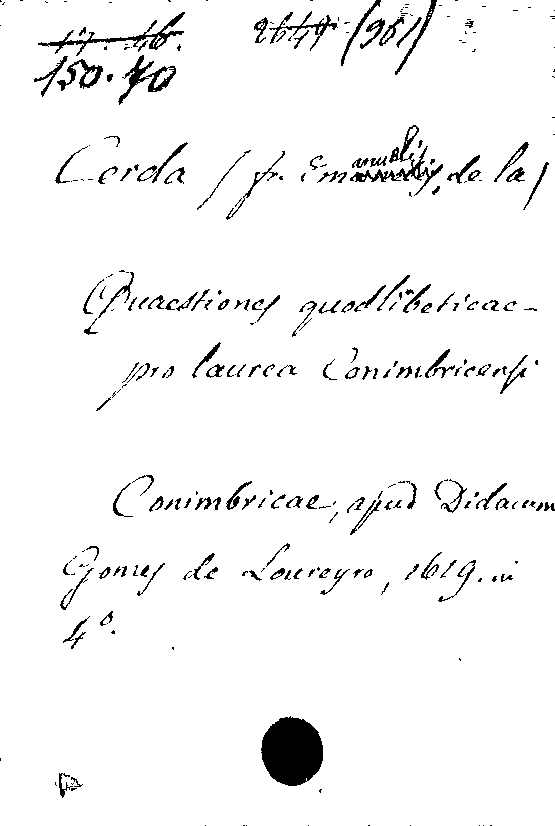 17. 46. 2649 (961)
150. 70
Cerda / fr. Emanualis, de la /
Quaestiones quodlibeticae
pro laurea Conimbricensi
Conimbricae, apud Didacum
Gomes de Loureyro, 1619. in
4º.